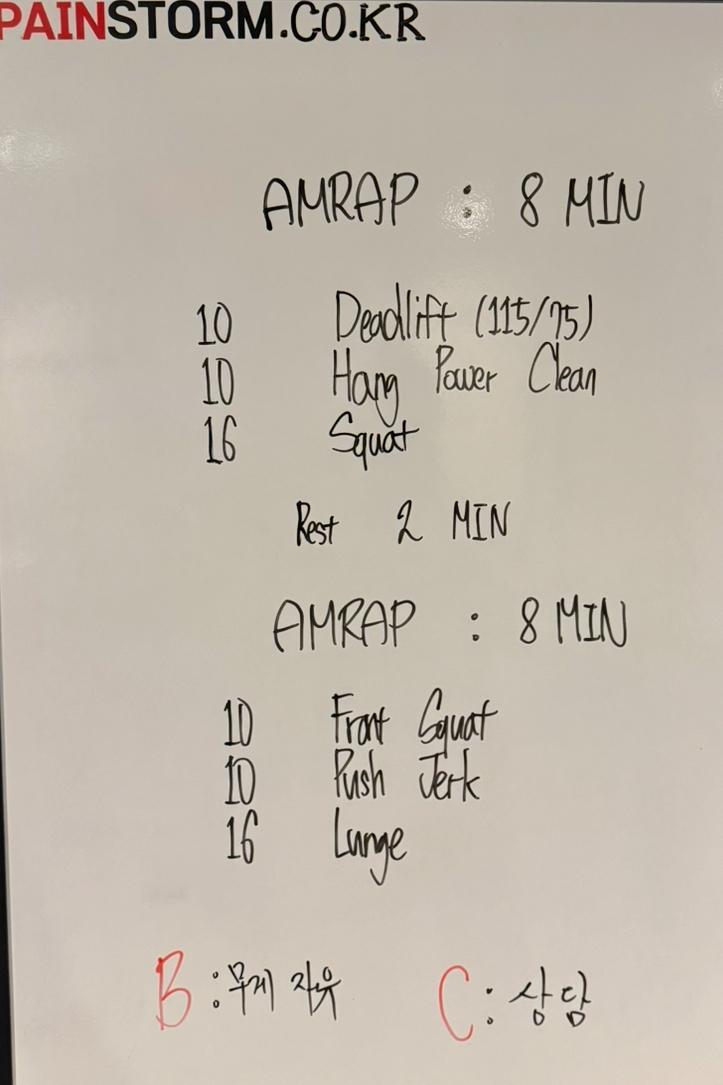 PAINSTORM.CO.KR
AMRAP : 8 MIN
10 Deadlift (115/75)
10 Hang Power Clean
16 Squat
Rest 2 MIN
AMRAP : 8 MIN
10 Front Squat
10 Push Jerk
16 Lunge
B : 무게 자유 C : 상담